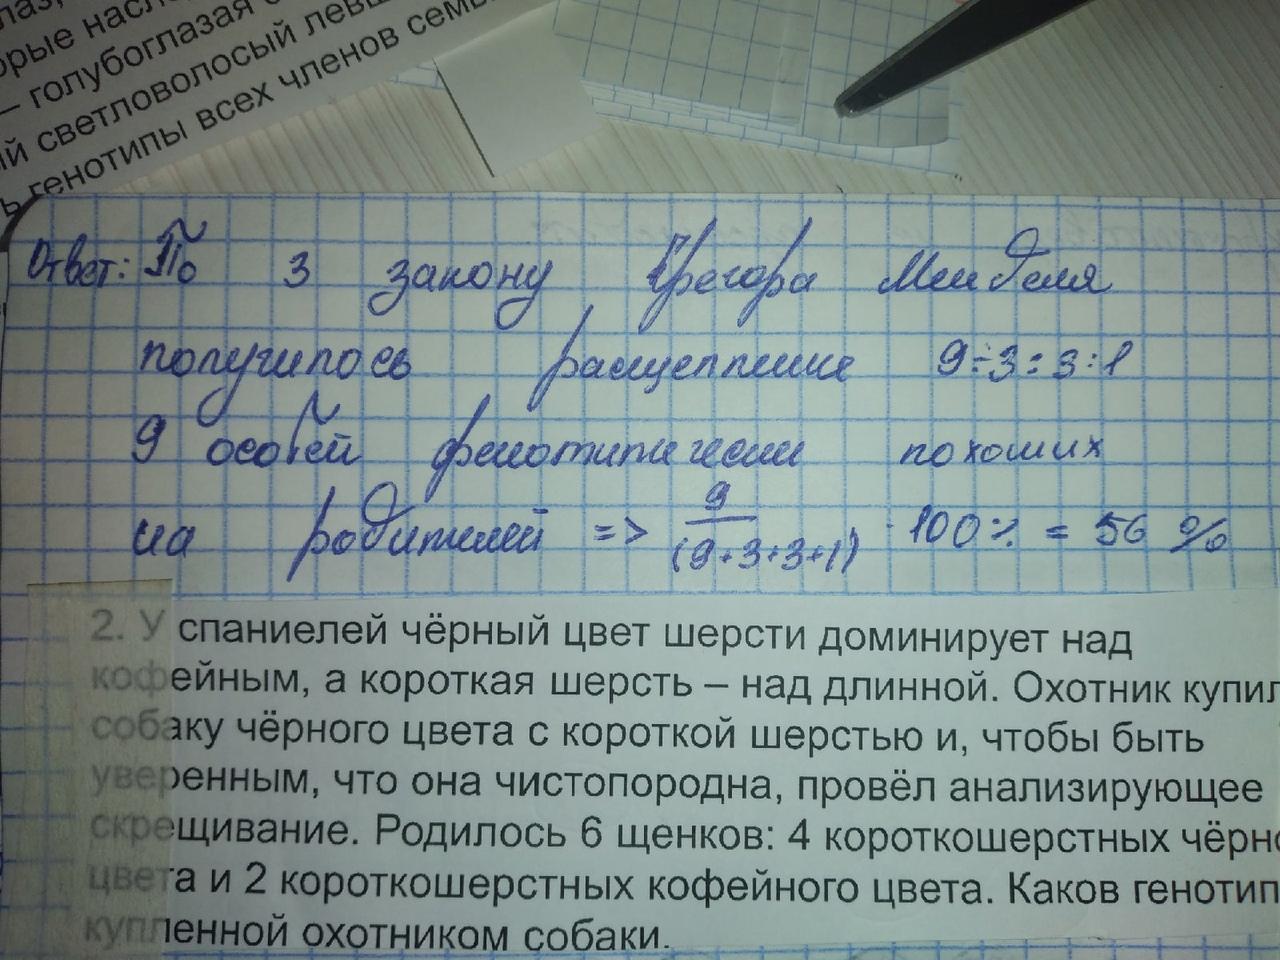 орые насл
– голубоглазая
й светловолосый левш
ь генотипы всех членов семь
Ответ: По 3 закону Грегора Менделя
получилось расщепление 9:3:3:1
9 особей фенотипически похоших
на родителей => 9/(9+3+3+1) · 100% = 56 %
2. У спаниелей чёрный цвет шерсти доминирует над
кофейным, а короткая шерсть – над длинной. Охотник купил
собаку чёрного цвета с короткой шерстью и, чтобы быть
уверенным, что она чистопородна, провёл анализирующее
скрещивание. Родилось 6 щенков: 4 короткошерстных чёрно
цвета и 2 короткошерстных кофейного цвета. Каков генотип
купленной охотником собаки.